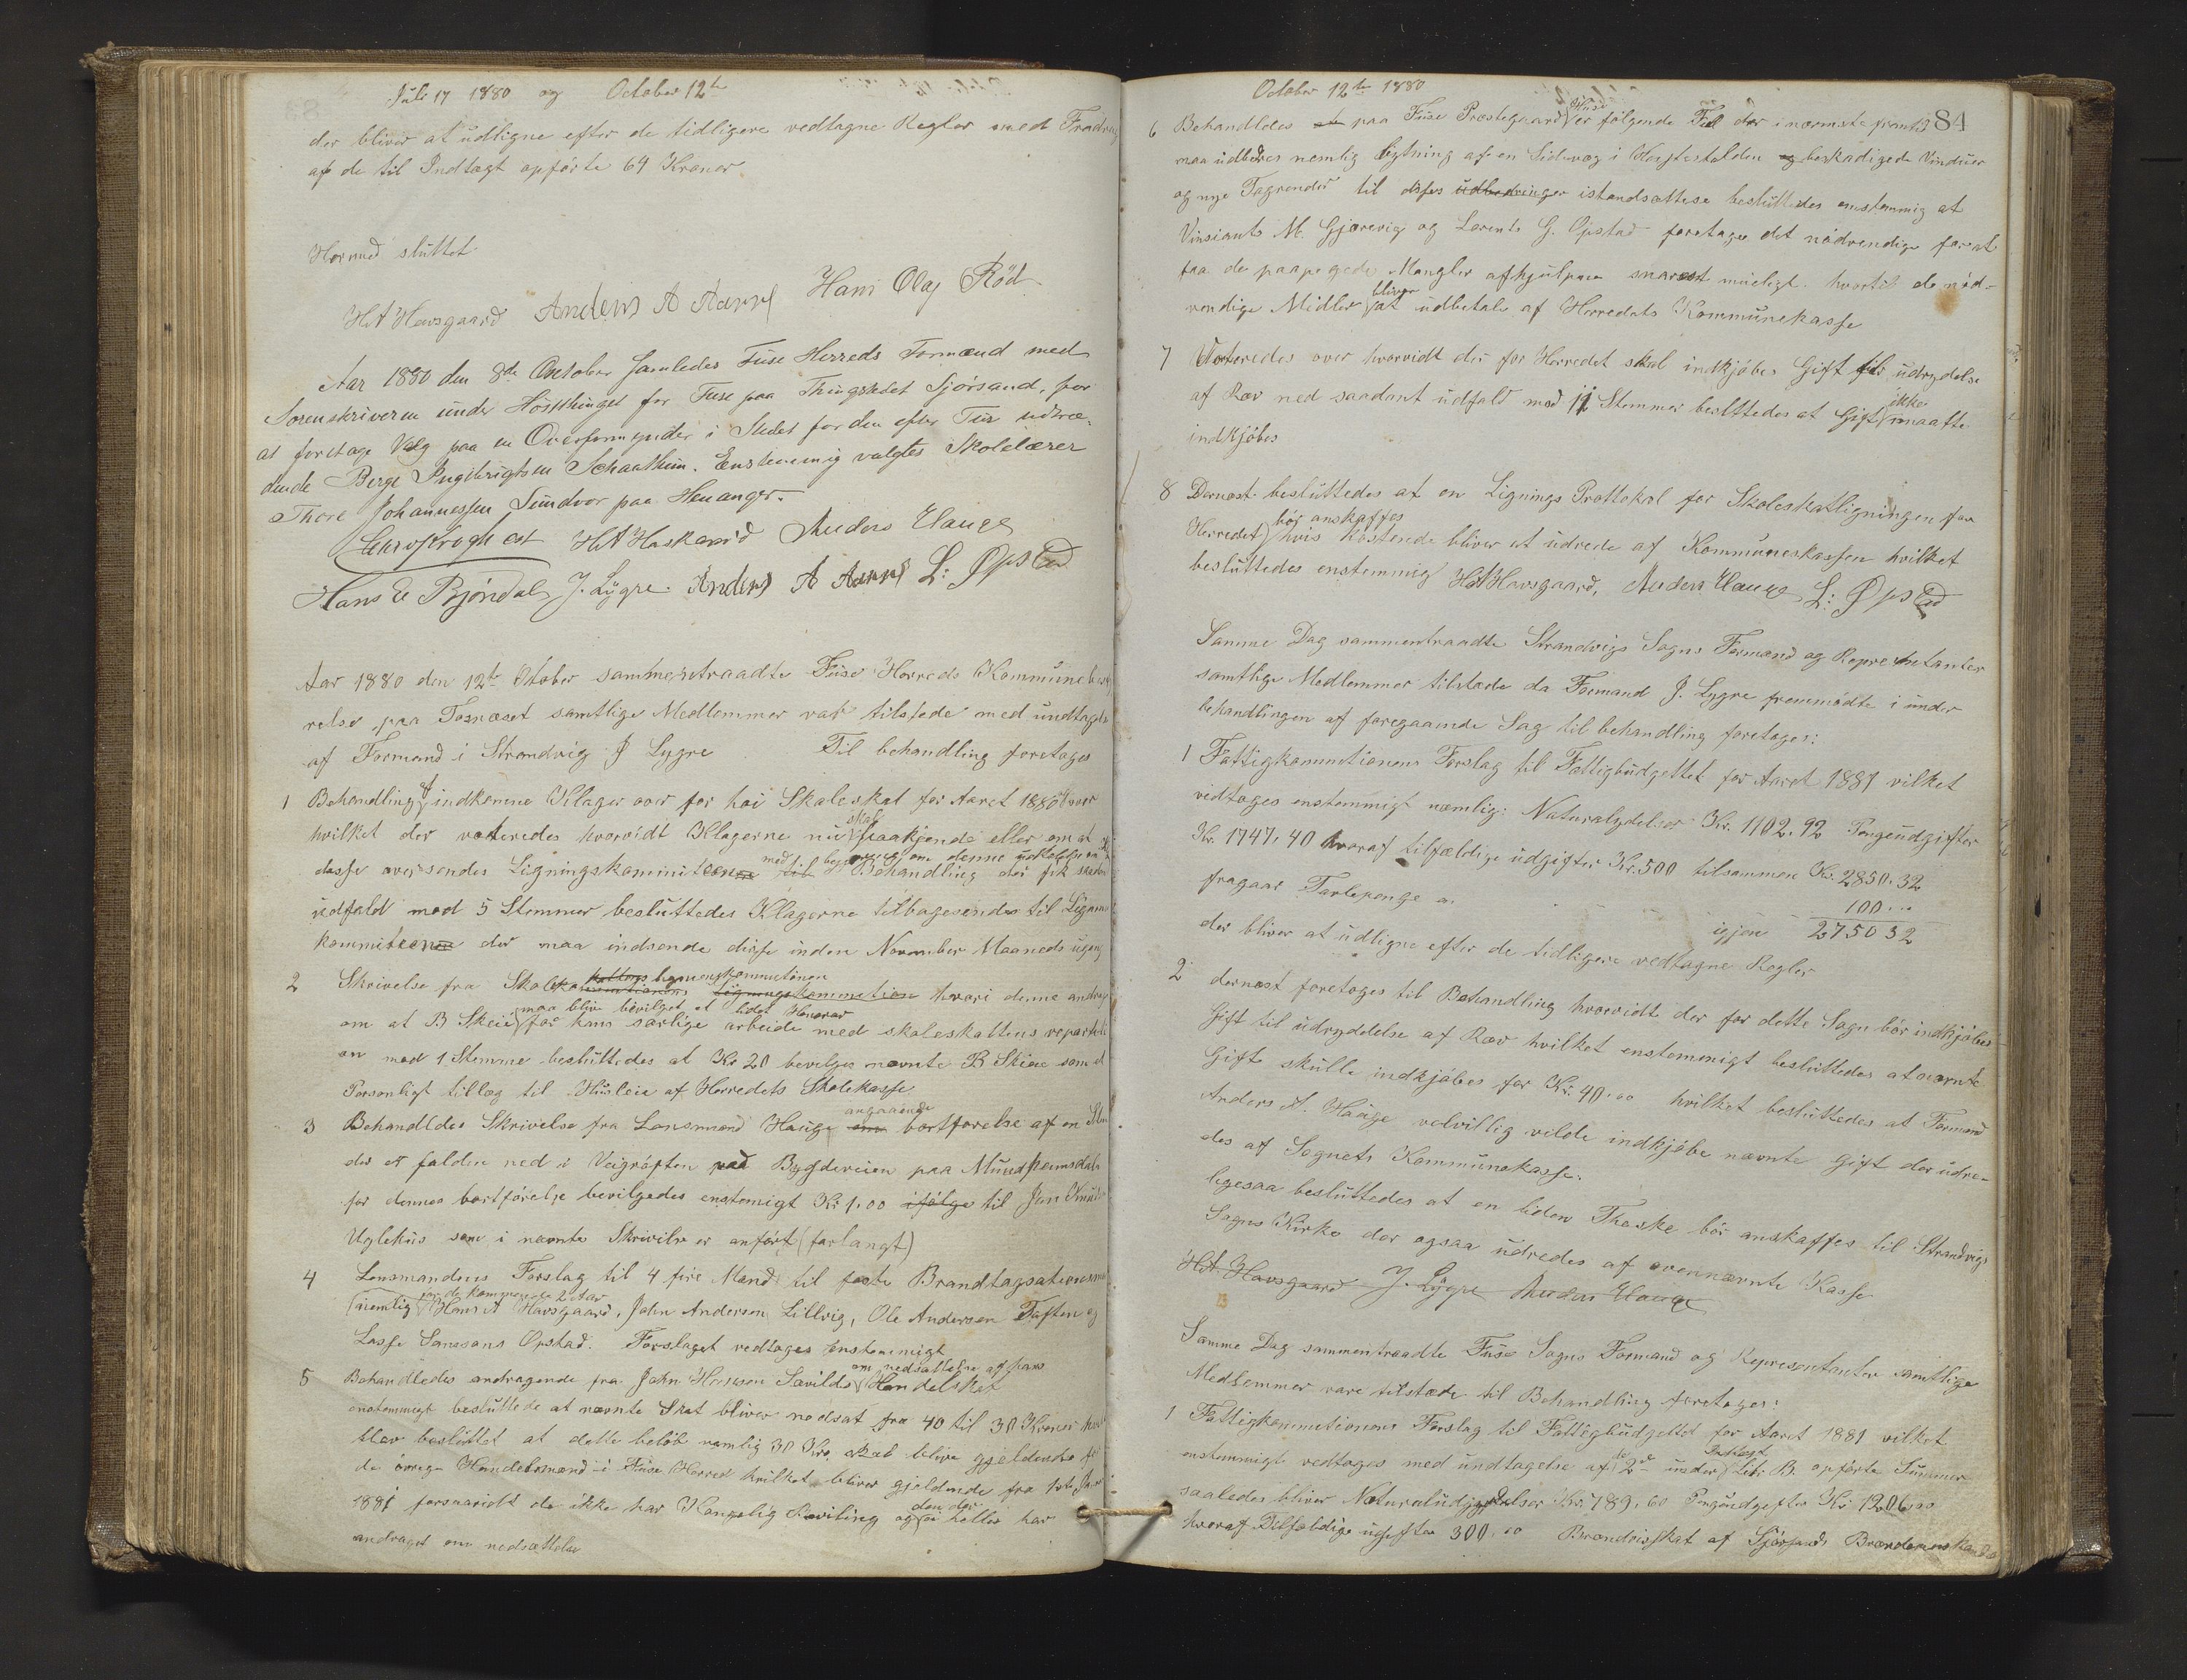 Juli 17 1880 og October 12te
der bliver at udligne efter de tidligere vedtagne Regler med Fradrag
af de til Indtægt opførte 64 Kroner
Hermed sluttet
HA Havsgaard Anders A Aarre Hans Olaj Röd
Aar 1880 den 8de October samledes Fuse Herreds Formænd med
Sorenskriveren under Høstthinget for Fuse paa Thingstedet Sjörsand, for
at foretage Valg paa en Overformynder i Stedet for den efter Tur udtræ-
dende Berge Ingebrigtsen Schaatheim. Enstemmig valgtes Skolelærer
Thore Johannessen Sundvor paa Henanger.
HA Haskaard Anders Hauge
Hans E Bjöndal, J. Lygre. Anders A Aarre L: Opstad
Aar 1880 den 12te Otober sammentraadte Fuse Herreds Kommunebesty
relse paa Tosneset samtlige Medlemmer var tilstede med undtagelse
af Formand i Strandvig J Lygre Til behandling foretages
1 Behandling af indkomne Klager over for höi Skoleskat for Aaret 1880 over
hvilket der voteredes hvorvidt Klagerne nu skal paakjende eller om at
desse oversendes Ligningskommiteen til med begjæring om denne udtalelse Behandling der fik saadan
udfald med 5 Stemmer besluttedes Klagerne tilbagesendes til Lignings
kommiteen der maa indsende disse inden November Maaneds ugang
2 Skrivelse fra Skole Ligningskommitionen hvori denne andrager
om at B Skeie maa blive bevilget et lidet Honorar for hans særlige arbeide med skoleskattens reparti
on med 1 Stemme besluttedes at Kr 20 bevilges nævnte B Skeie som et
Personligt tillæg til Husleie af Herredets Skolekasse
3 Behandldes Skrivelse fra Lensmand Hauge om angaaende bortførelse af en Sten
der er falden ned i Veigröften ved Bygdeveien paa Mundheimsdalen
for dennes bortförelse bevilgedes enstemigt Kr 1.00 ifølge til Jon Knuds
Uglehus som i nævnte Skrivilse er anført (forlangt)
4 Lensmandens Forslag til 4 fire Mænd til faste Brandtagsationsmænd
for de kommende 2 Aar
nemlig Hans A Havsgaard, John Andersen Lillevig, Ole Andersen Toften og
Lasse Sansons Opstad. Forslaget vedtages Enstemmigt
5 Behandledes andragende fra John Hansson Sævilds om nedsættelse af hans Handelskat
enstemmigt besluttede at nævnte Skat bliver nedsat fra 40 til 30 Kroner
blev besluttet at dette beløb nemlig 30 Kro. skal blive gjeldende for
de övrege Handelsmænd i Fuse Herred hvilket bliver gjeldende fra 1ste Jan
1881 forsaavidt de ikke har Kongelig Beviling og den der ei heller har
andraget om nedsættelse
October 12te 1880
84
6 Behandledes at paa Fuse Prestegaards Huse er følgende Feil der i nærmste fremtid
maa udbedres nemlig bytning af en Sidevæg i Hestestalden og beskadigede Vinduer
og nye Tagrender til disses udbedringer istandsættese besluttedes enstemmig at
Vinsiants M. Gjærevig og Lorents G. Opstad foretager det nödvendige forat
faa de paapegede Mangler afhjulpen snarest mueligt. hvortil de nöd-
vendige Midler bliver at udbetale af Herredets Kommunekasse
7 Voteredes over hvorvidt der for Herredet skal indkjöbes Gift til udrydelse
af Ræv ned saadant udfald med 11 Stemmer besluttedes at Gift ikke maatte
indkjöbes
8 Dernæst besluttedes at en Lignings Prottokol for Skoleskatligningen for
Herredet bör anskaffes hvis kostende bliver at udrede af Kommuneskassen hvilket
besluttedes enstemmig HA Havsgaard, Anders Hauge L: Opstad
Samme Dag sammentraadte Strandvigs Sogns Formænd og Representanter
samtlige Medlemmer tilstede da Formand J. Lygre fremmödte i under
behandlingen af foregaaende Sag til behandling foretages:
1 Fattigkommitionens Forslag til Fattigbudgettet for Aaret 1881 vilket
vedtages enstemmigt nemlig: Naturalydelser Kr. 1102.92 Pengeudgifter
Kr. 1747.40 hvoraf tilfældige udgifter Kr. 500 tilsammen Kr. 2850.32
fragaar Tærlepenge a. 100...
igjen 2750 32
der bliver at udligne efter de tidligere vedtagne Regler
2 dernæst foretages til Behandling hvorvidt der for dette Sogn bör indkjöbes
Gift til udryddelse af Ræv hvilket enstemmigt besluttedes at nævnte
Gift skulle indkjöbes for Kr. 40.00 hvilket besluttedes at Formand
Anders A. Hauge velvillig vilde indkjöbe nævnte Gift der udre-
des af Sognets Kommunekasse.
ligesaa besluttedes at en liden Thaske bör anskaffes til Strandvigs
Sogns Kirke der ogsaa udredes af ovennævnte Kasse
HA Havsgaard J. Lygre Anders Hauge
Samme Dag sammentraadte Fuse Sogns Formænd og Representanter samtlige
Medlemmer vare tilstæde til Behandling foretages:
1 Fattigkommitionens Forslag til Fattigbudgettet for Aaret 1881 vilket
enstemmigt vedtages med undtagelse af de 2de under Indtægt Litr B. opførte Summer
saaledes bliver Naturaludgydelser Kr. 789.60 Pengeudgifter Kr 1206.00
hvoraf Tilfældige udgifter 300.00 Brændvisskat af Sjörsands Brændevinshandel